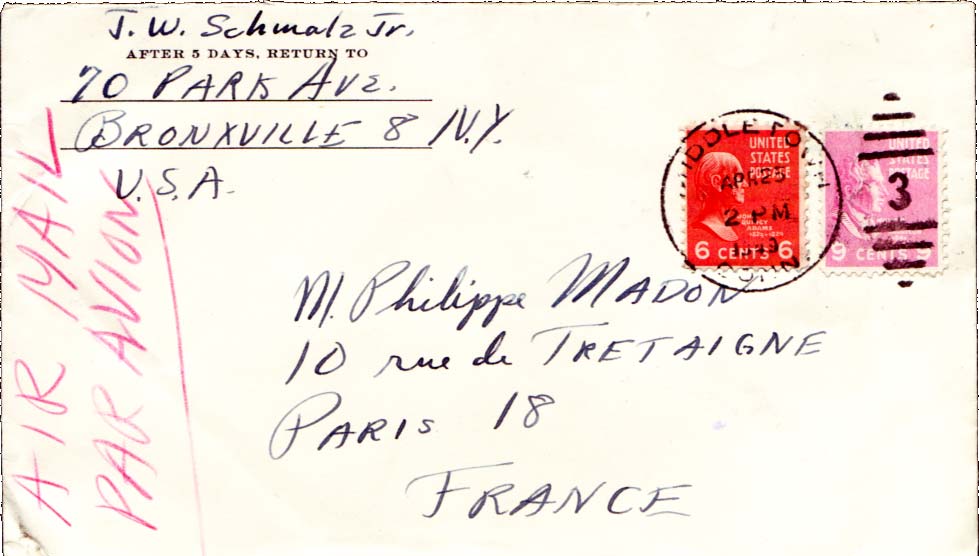 J. W. Schmalz Jr.
AFTER 5 DAYS, RETURN TO
70 PARK AVE.
BRONXVILLE 8 N.Y.
U.S.A.
AIR MAIL
PAR AVION
MIDDLETOWN
APR 25
2 PM
CONN.
UNITED
STATES
POSTAGE
JOHN
QUINCY
ADAMS
6 CENTS 6
UNITED
STATES
POSTAGE
3
9 CENTS 9
M. Philippe MADON
10 rue de TRETAIGNE
PARIS 18
FRANCE